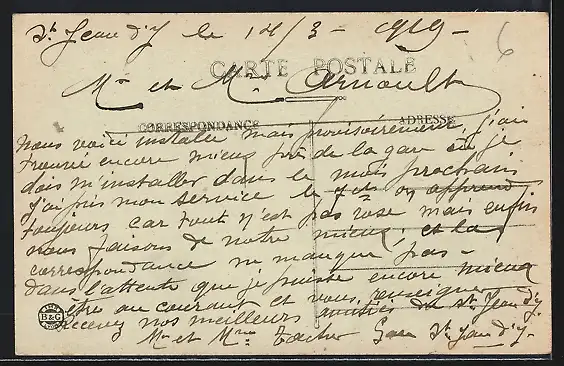 St Jean d'Y le 14/3 - 1919 -
CARTE POSTALE
Mr et Me Arnoult
CORRESPONDANCE ADRESSE
nous voici installés mais provisoirement, j'ai
trouvé encore mieux près de la gare où je
dois m'installer dans le mois prochain
j'ai pris mon service le on apprend
toujours car tout n'est pas rose mais enfin
nous faisons de notre mieux, et la
correspondance ne manque pas -
dans l'attente que je puisse encore mieux
être au courant et vous renseigner
amitiés de St Jean d'Y.
B&G
Recevez nos meilleurs
Mr et Mme Gare St Jean d'Y.
6